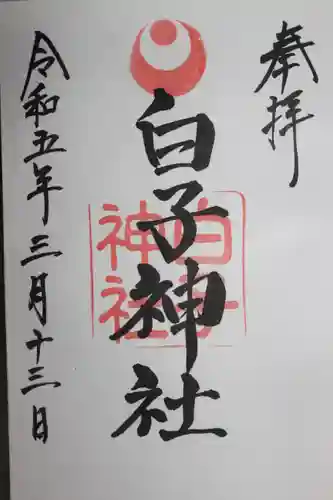 奉拝
白子神社
白子神社
令和五年三月十三日